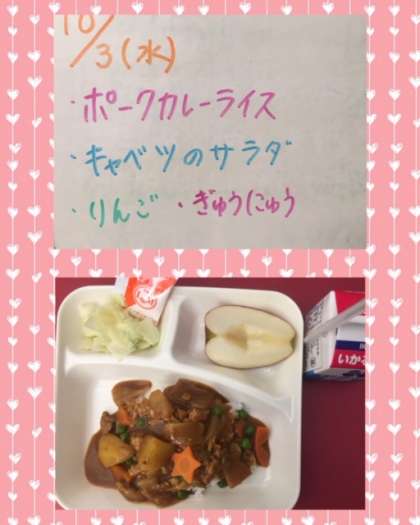 10/3(水)
・ポークカレーライス
・キャベツのサラダ
・りんご ・ぎゅうにゅう
いかる